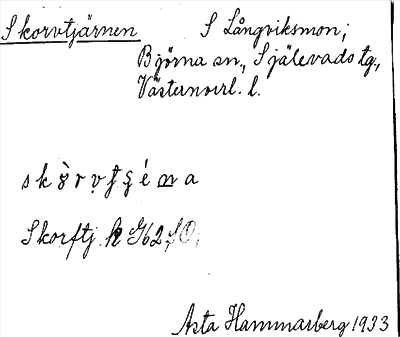 Skorvtjärnen S Långviksmon;
Björna sn., Själevads tg.,
Västernorrl. l.
skòrvțȿéna
Skorftj. k G62 SO,
Asta Hammarberg 1933